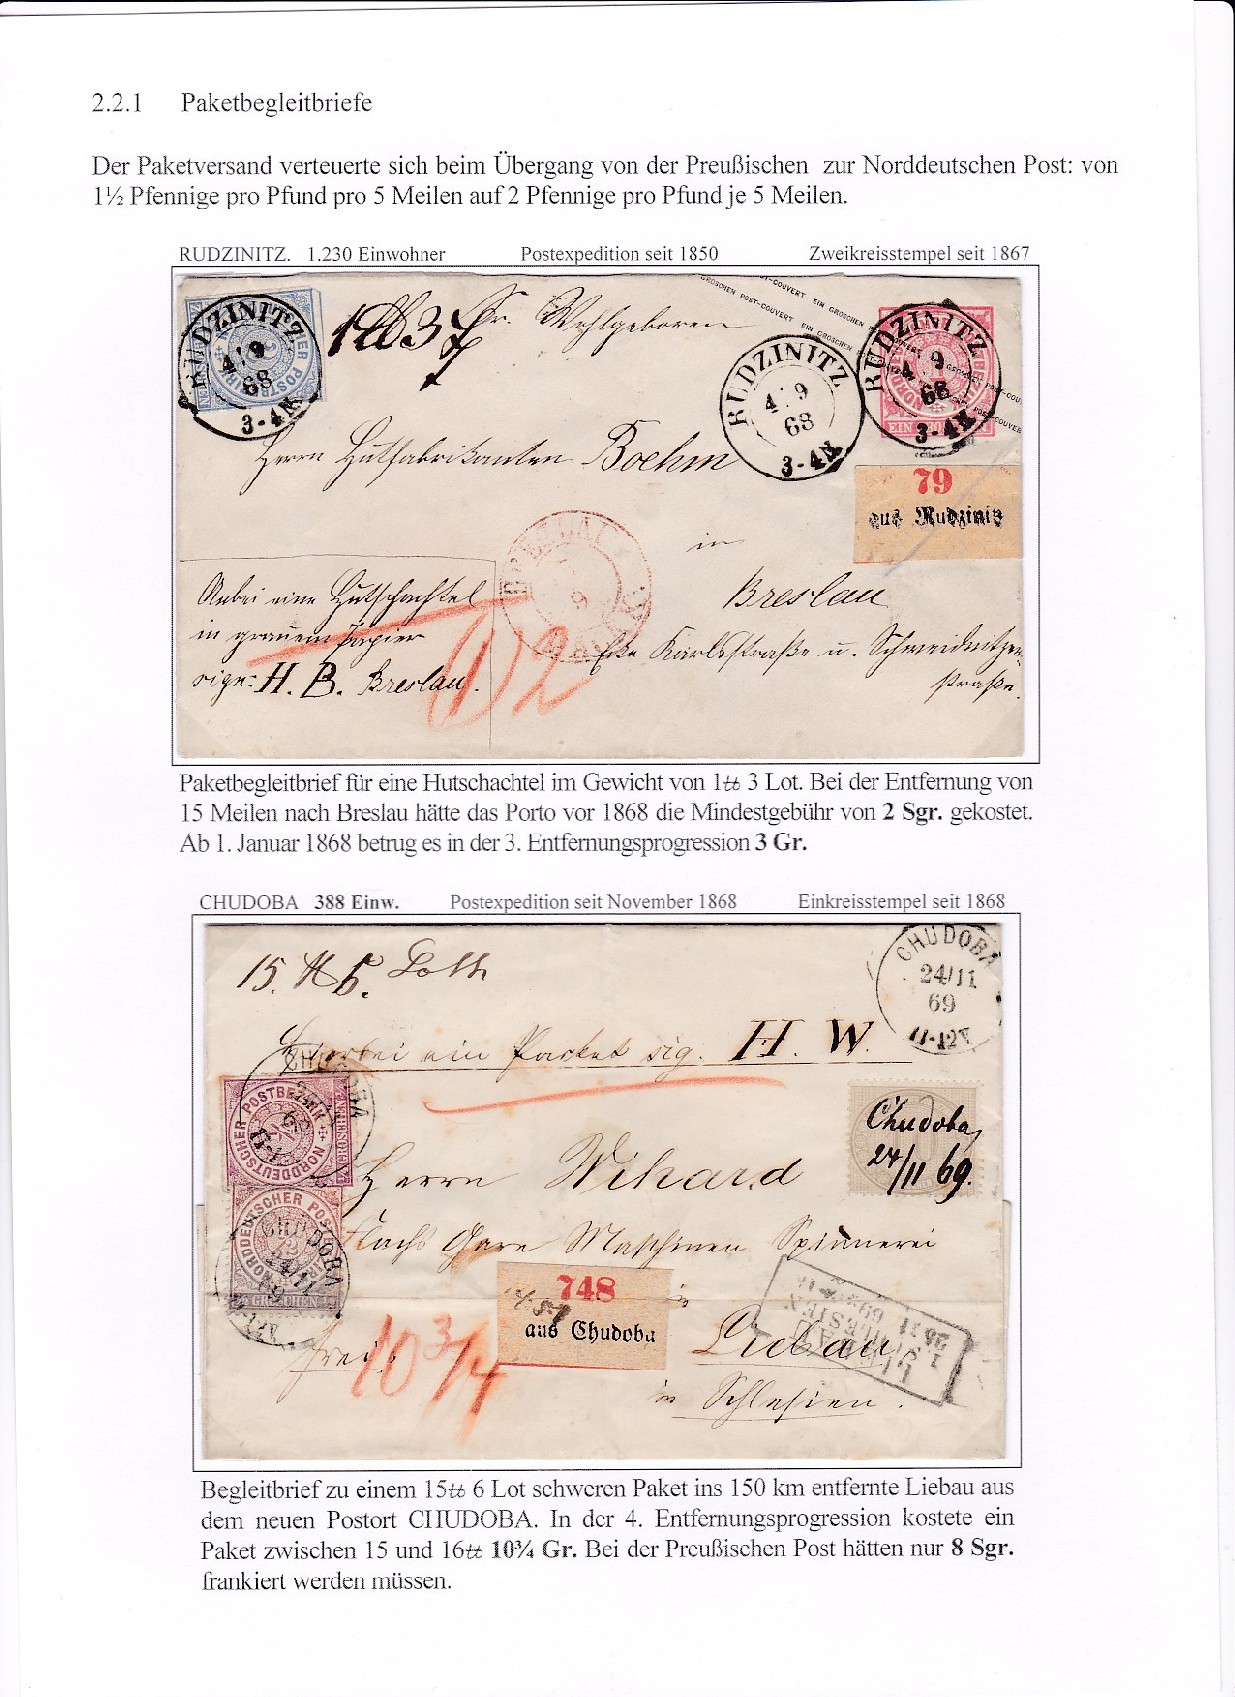 2.2.1 Paketbegleitbriefe
Der Paketversand verteuerte sich beim Übergang von der Preußischen zur Norddeutschen Post: von
1½ Pfennige pro Pfund pro 5 Meilen auf 2 Pfennige pro Pfund je 5 Meilen.
RUDZINITZ. 1.230 Einwohner Postexpedition seit 1850 Zweikreisstempel seit 1867
RUDZINITZ
4 9
68
3-4N
Sr. Wohlgeboren
GROSCHEN POST-COUVERT EIN GROSCHEN
RUDZINITZ
4 9
68
3-4N
RUDZINITZ
4 9
68
3-4N
Herrn Hutfabrikanten Boehm
79
aus Rudzinitz
in
Breslau
BRESLAU
Anbei eine Hutschachtel
in grauem Papier
sign: H. B. Breslau.
Ecke Karlsstraße u. Schweidnitzer-
straße.
Paketbegleitbrief für eine Hutschachtel im Gewicht von 1℔ 3 Lot. Bei der Entfernung von
15 Meilen nach Breslau hätte das Porto vor 1868 die Mindestgebühr von 2 Sgr. gekostet.
Ab 1. Januar 1868 betrug es in der 3. Entfernungsprogression 3 Gr.
CHUDOBA 388 Einw. Postexpedition seit November 1868 Einkreisstempel seit 1868
15. ℔ 6. Loth
CHUDOBA
24/11
69
11-12V
Hierbei ein Packet sig. H. W.
NORDDEUTSCHER POSTBEZIRK
GROSCHEN
Chudoba,
24/11 69.
Herrn Wihard
NORDDEUTSCHER POSTBEZIRK
½ GROSCHEN
CHUDOBA
24/11
Flachs Garn Maschinen Spinnerei
748
aus Chudoba
in
Liebau
frei.
10 3/4
LIEBAU
I. SCHLESIEN
25 11 69
in Schlesien.
Begleitbrief zu einem 15℔ 6 Lot schweren Paket ins 150 km entfernte Liebau aus
dem neuen Postort CHUDOBA. In der 4. Entfernungsprogression kostete ein
Paket zwischen 15 und 16℔ 10¾ Gr. Bei der Preußischen Post hätten nur 8 Sgr.
frankiert werden müssen.